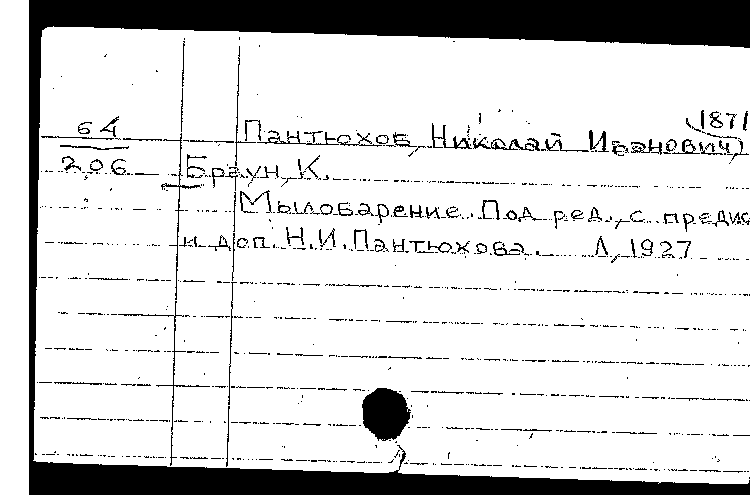 1871
64 Пантюхов, Николай Иванович,
206 Браун, К.
Мыловарение. Под ред., с предис
и доп. Н.И. Пантюхова. Л, 1927